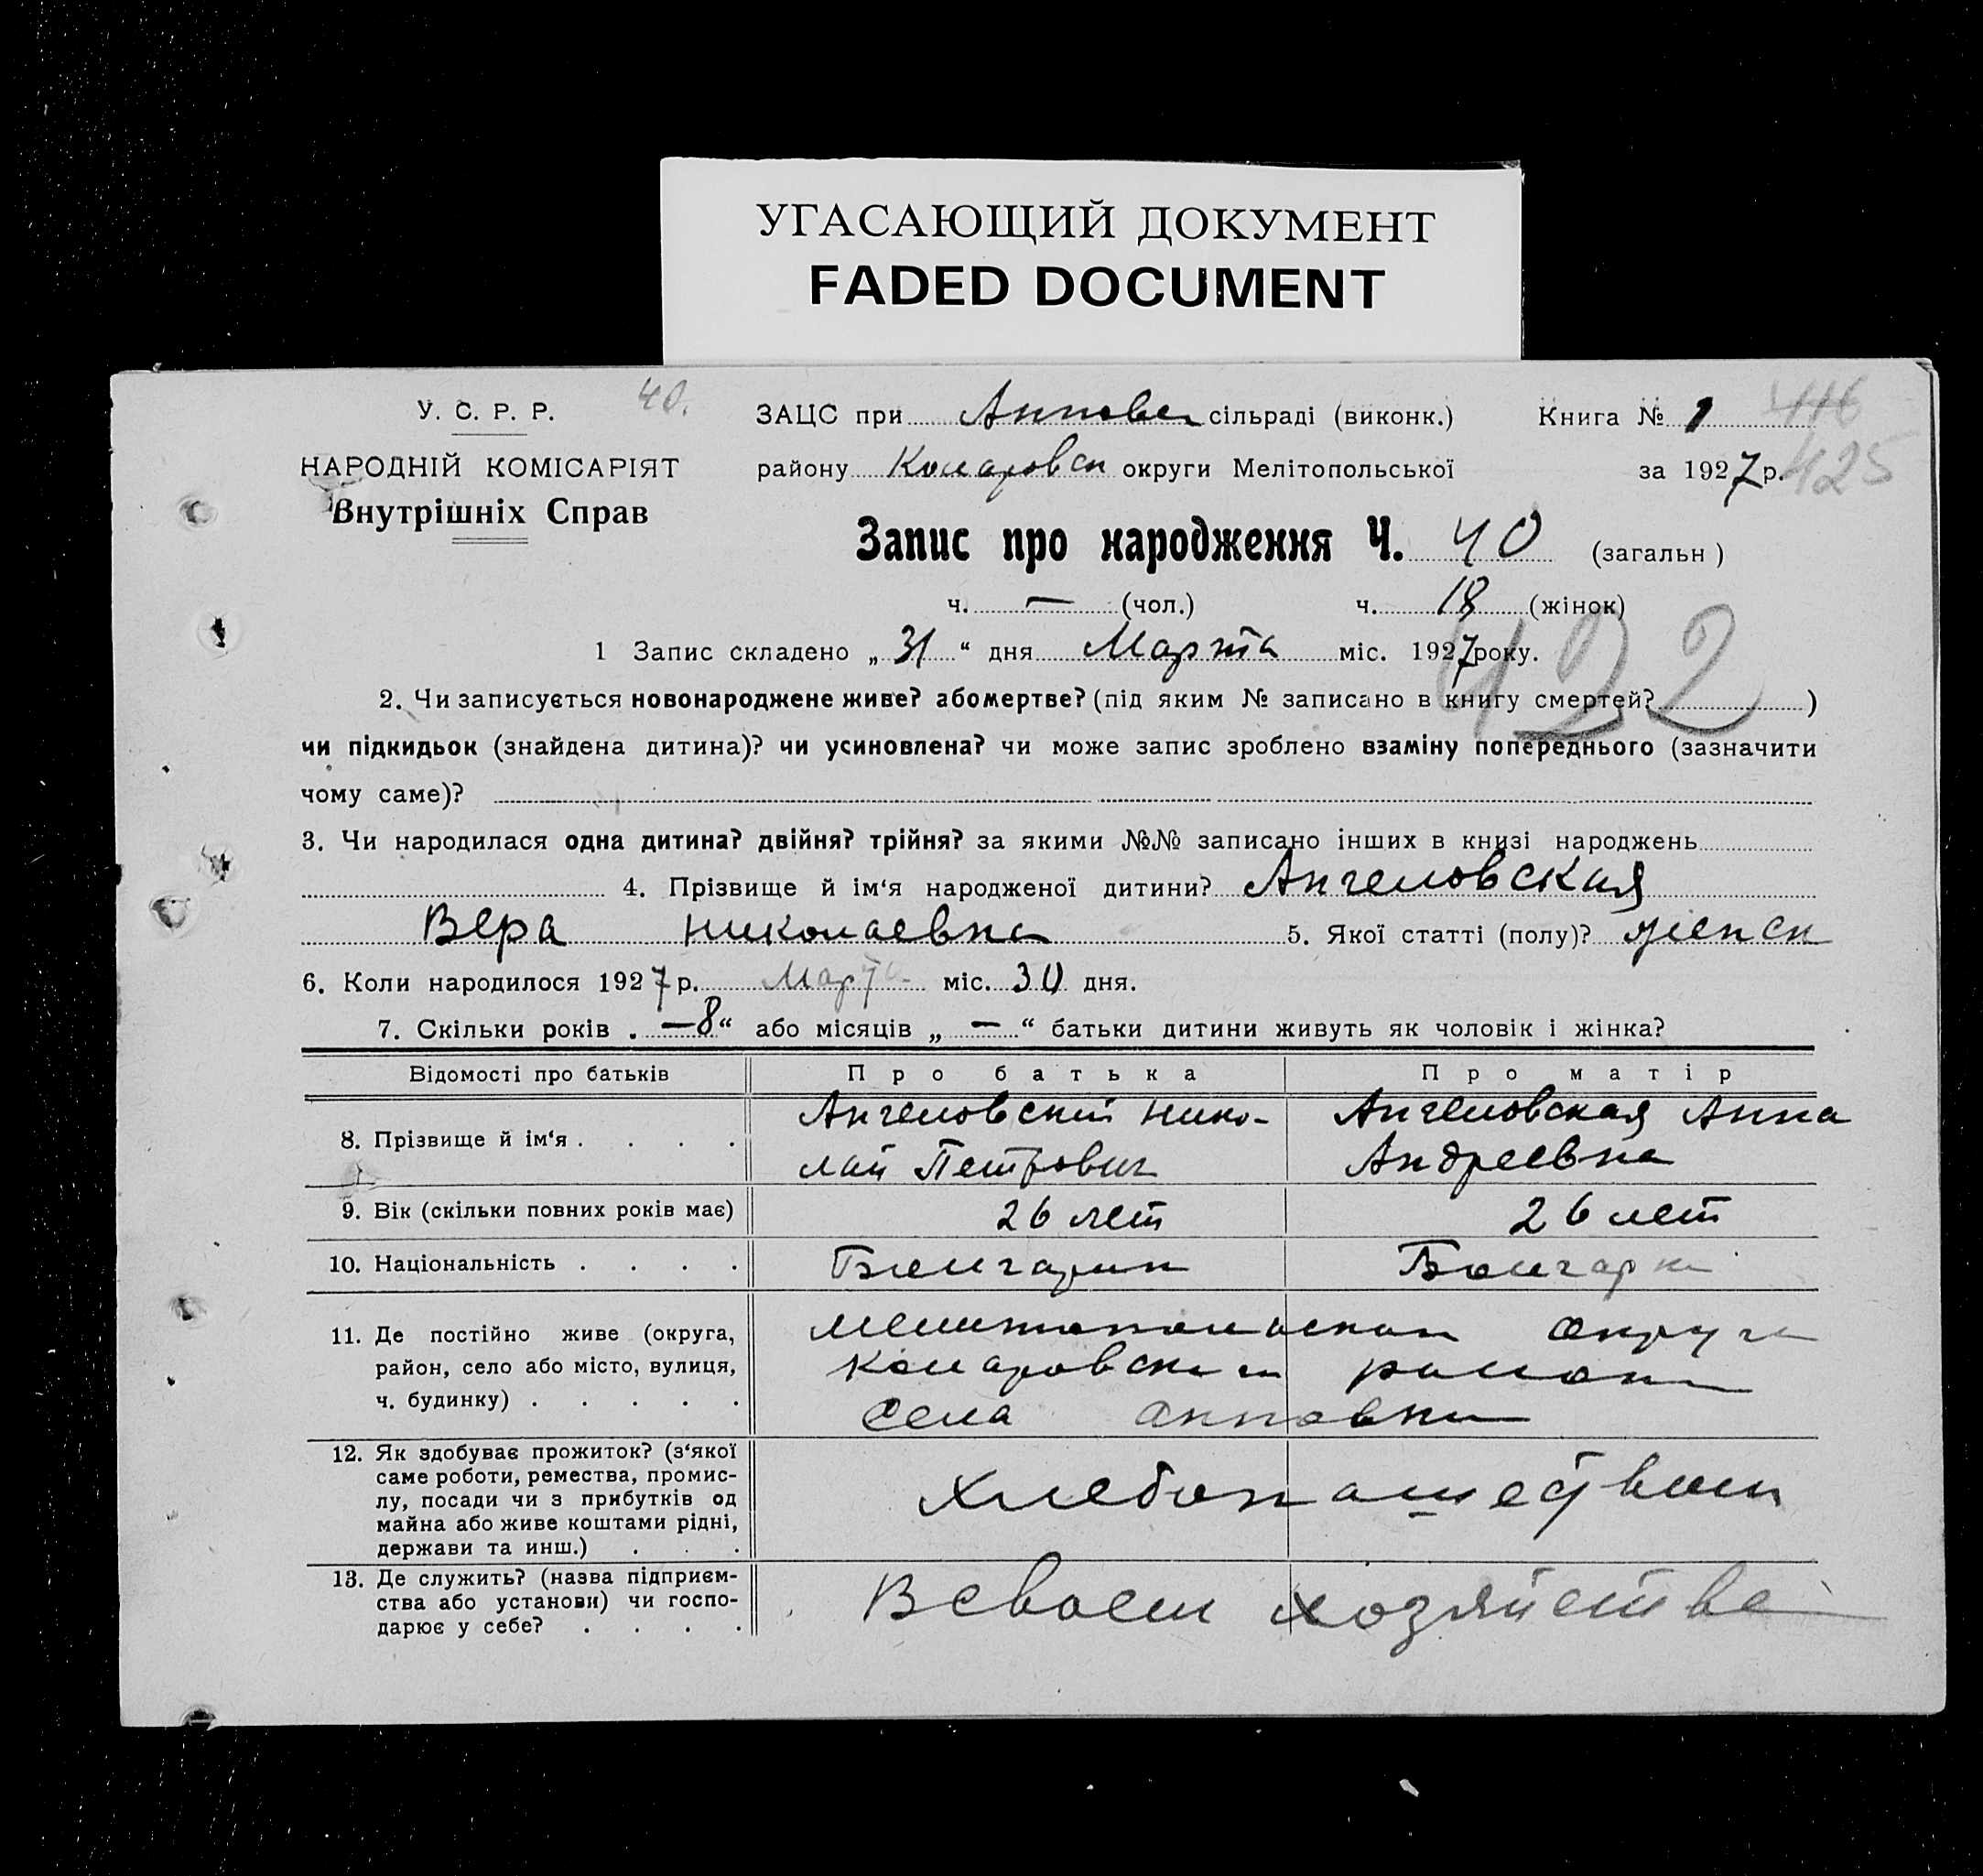 УГАСАЮЩИЙ ДОКУМЕНТ
FADED DOCUMENT
У. С. Р. Р.
40.
НАРОДНІЙ КОМІСАРІЯТ
Внутрішніх Справ
ЗАЦС при Анновск сільраді (виконк.) Книга № 1
416
району Комаровск округи Мелітопольської за 1927 р.
425
Запис про народження Ч. 40 (загальн )
ч. — (чол.) ч. 18 (жінок)
422
1 Запис складено „ 31 “ дня Марта міс. 1927 року.
2. Чи записується новонароджене живе? або мертве? (під яким № записано в книгу смертей? )
чи підкидьок (знайдена дитина)? чи усиновлена? чи може запис зроблено взаміну попереднього (зазначити
чому саме)?
3. Чи народилася одна дитина? двійня? трійня? за якими №№ записано інших в книзі народжень
4. Прізвище й ім‘я народженої дитини? Ангеловская
Вера Николаевна 5. Якої статті (полу)? женск
6. Коли народилося 1927 р. Марта міс. 30 дня.
7. Скільки років „ —8 “ або місяців „ — “ батьки дитини живуть як чоловік і жінка?
Відомості про батьків Про батька Про матір
8. Прізвище й ім‘я . . . .
Ангеловский Нико-
лай Петрович
Ангеловская Анна
Андреевна
9. Вік (скільки повних років має) 26 лет 26 лет
10. Національність . . . . Болгарин Болгарка
11. Де постійно живе (округа,
район, село або місто, вулиця,
ч. будинку) . . . . .
Мелитопольской округи
Комаровского района
Села Анновки
12. Як здобуває прожиток? (з‘якої
саме роботи, ремества, промис-
лу, посади чи з прибутків од
майна або живе коштами рідні,
держави та инш.) . . .
Хлебопашеством
13. Де служить? (назва підприєм-
ства або установи) чи госпо-
дарює у себе? . . . .
В своем хозяйстве